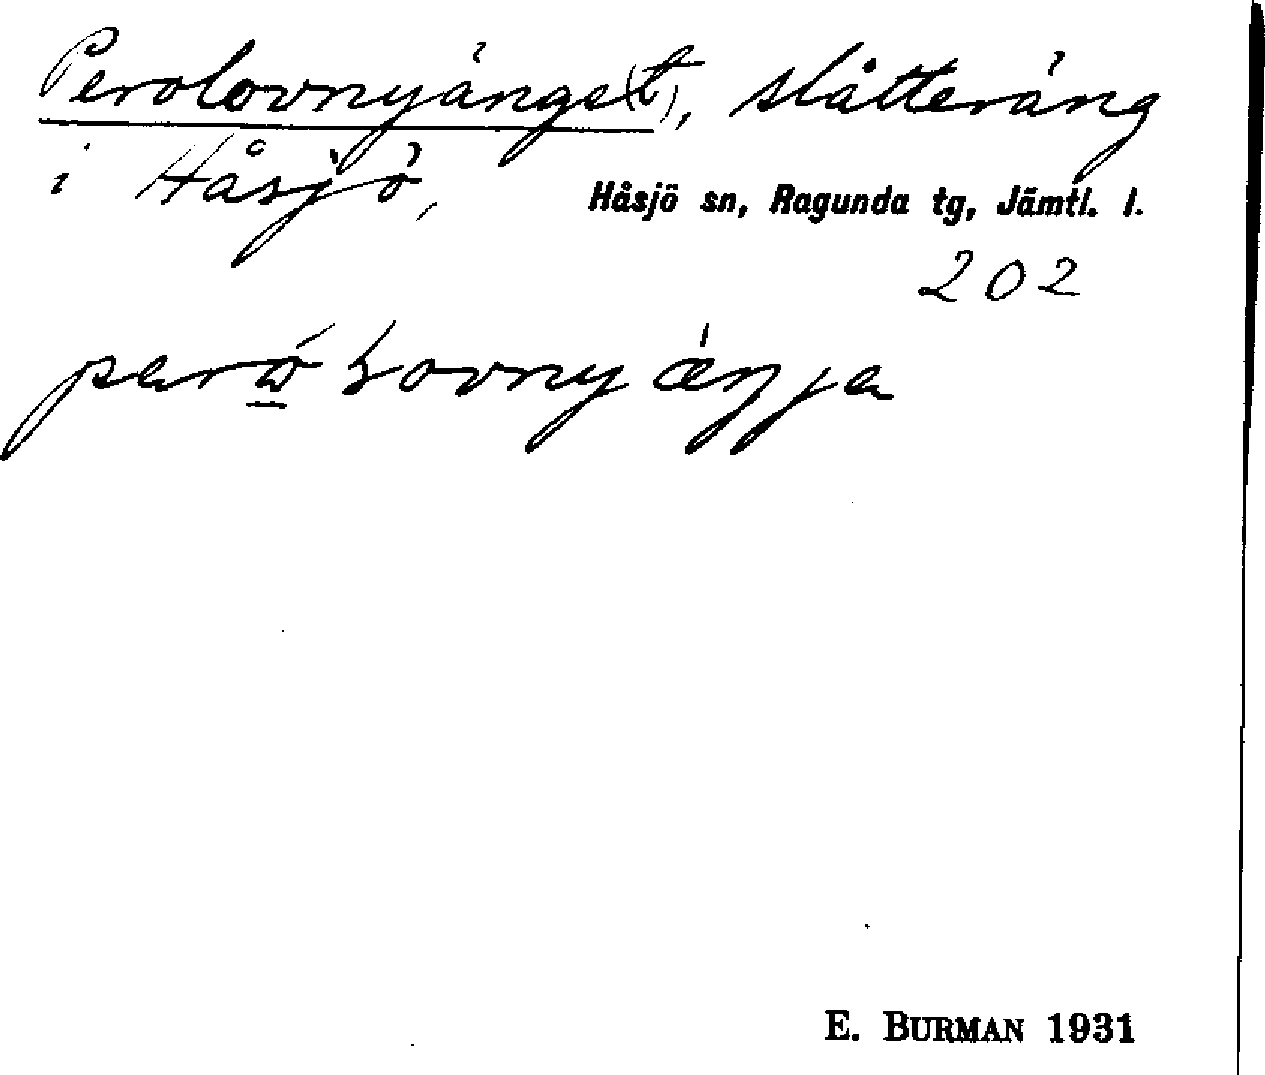 Perolovnyänge(t), slåtteräng
i Håsjö, Håsjö sn, Ragunda tg, Jämtl. l.
202
E. BURMAN 1931